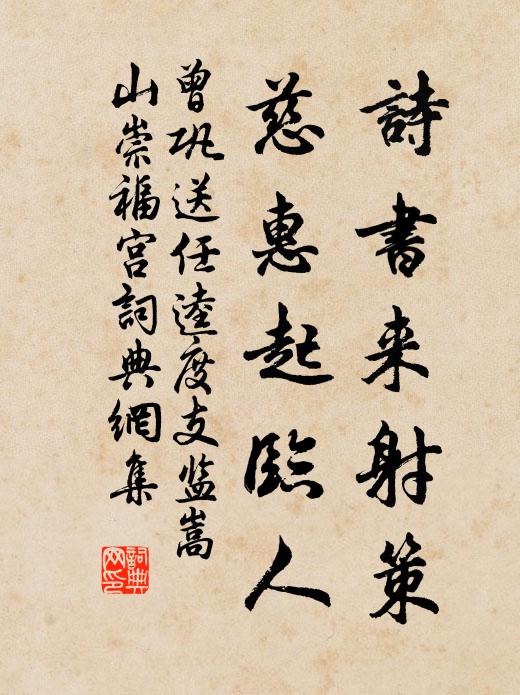 詩書来射策
慈惠起臨人
曾巩送任逵度支监嵩
山崇福宫詞典網集
詞典网印